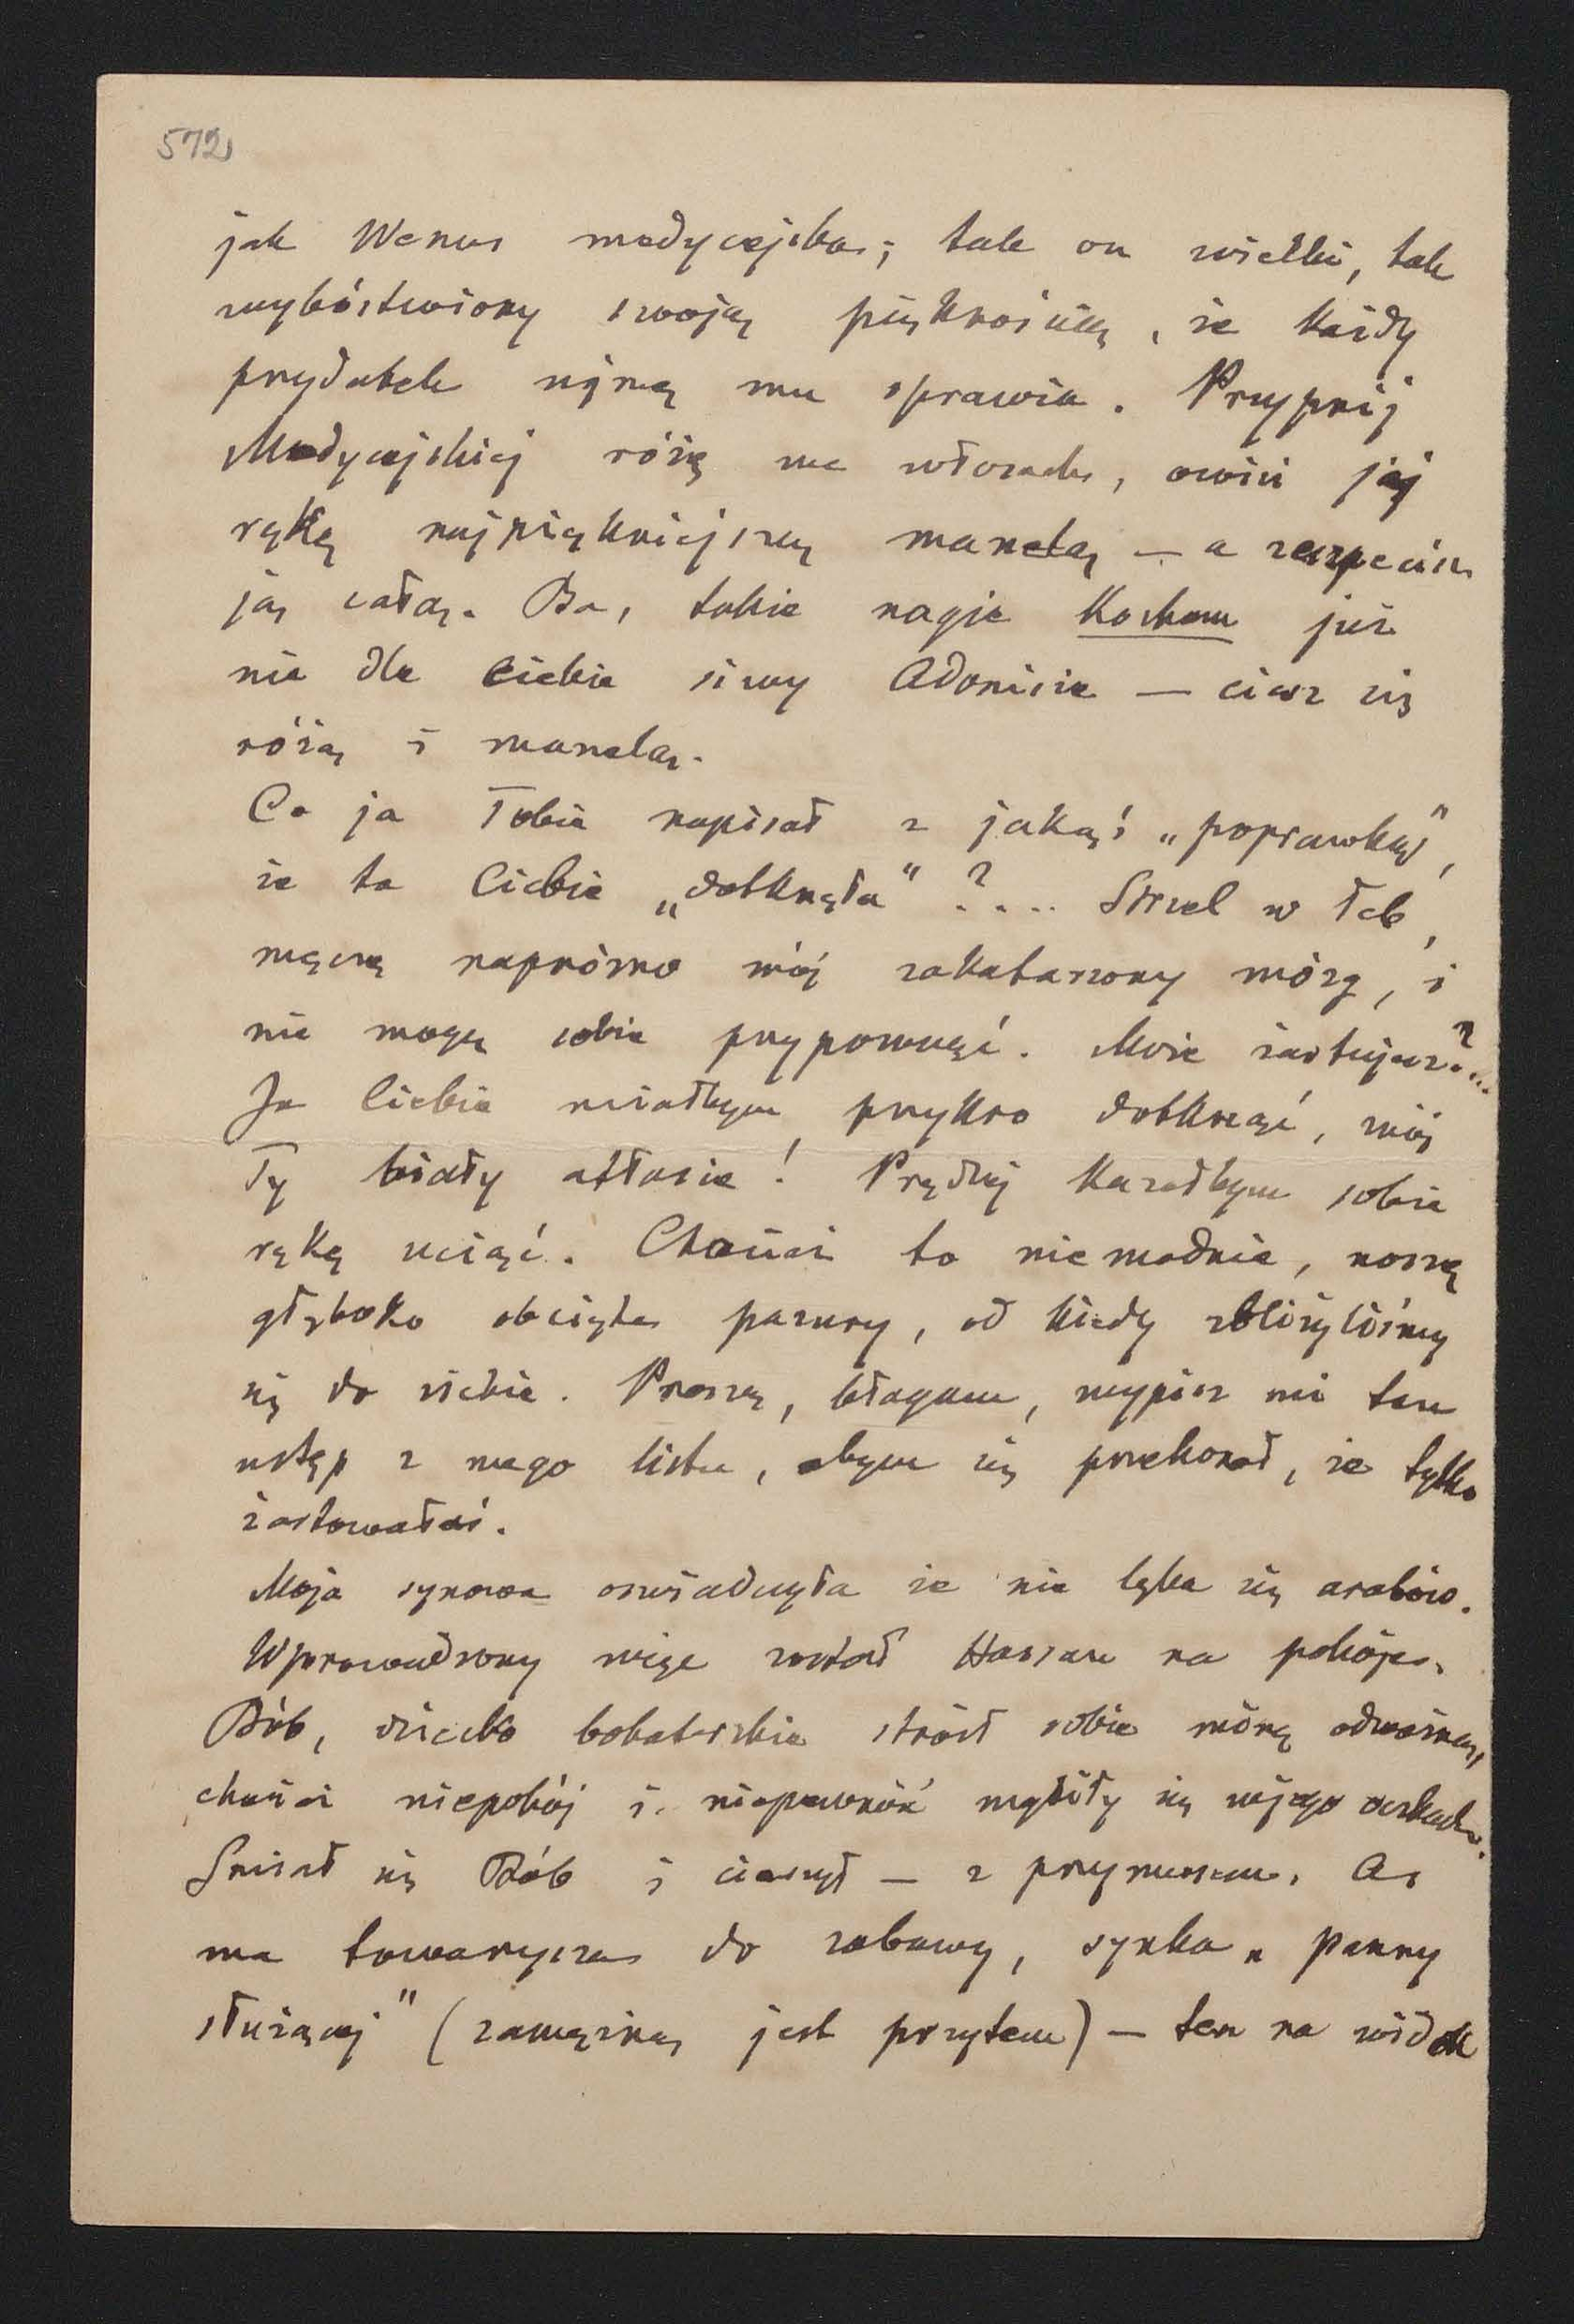 572
jak Wenus medycejska; tak on wielki, tak
wybóstwiony swoją pięknością, że każdy
przydatek ujmę mu sprawia. Przypnij
Medycejskiej różę we włosach, owiń jej
rękę najpiękniejszą manelą — a zeszpecisz
ją całą. Ba, takie nagie Kocham już
nie dla Ciebie siwy Adonisie — ciesz się
różą i manelą.
Co ja Tobie napisał z jakąś „poprawką",
że to Ciebie „dotknęło"?.... Strzel w łeb,
męczę napróżno mój zakatarzony mózg, i
nie mogę sobie przypomnąć. Może żartujesz?...
Ja Ciebie miałbym przykro dotknąć, mój
Ty biały atłasie! Prędzej kazałbym sobie
rękę uciąć. Chociaż to niemodnie, noszę
głęboko obcięte pazury, od kiedy zbliżyliśmy
się do siebie. Proszę, błagam, wypisz mi ten
ustęp z mego listu, abym się przekonał, że tylko
żartowałaś.
Moja synowa oświadczyła że nie lęka się arabów.
Wprowadzony więc został Hassan na pokoje.
Bób, dziecko bohaterskie stroił sobie minę odważną,
chociaż niepokój i niepewność wybiły się w jego oczkach.
Śmiał się Bób i cieszył — z przymusem. As
ma towarzysza do zabawy, synka „panny
służącej" (zamężną jest przytem) — ten na widok